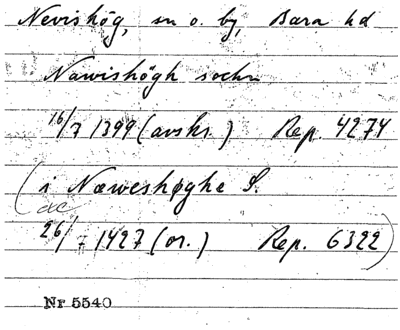 Nevishög, sn o. by, Bara hd
Nawishögh sochn
16/7 1399 (avskr.) Rep 4274
(i Næweshøghe S.
ae
26/7 1427 (or.) Rep. 6322)
Nr 5540